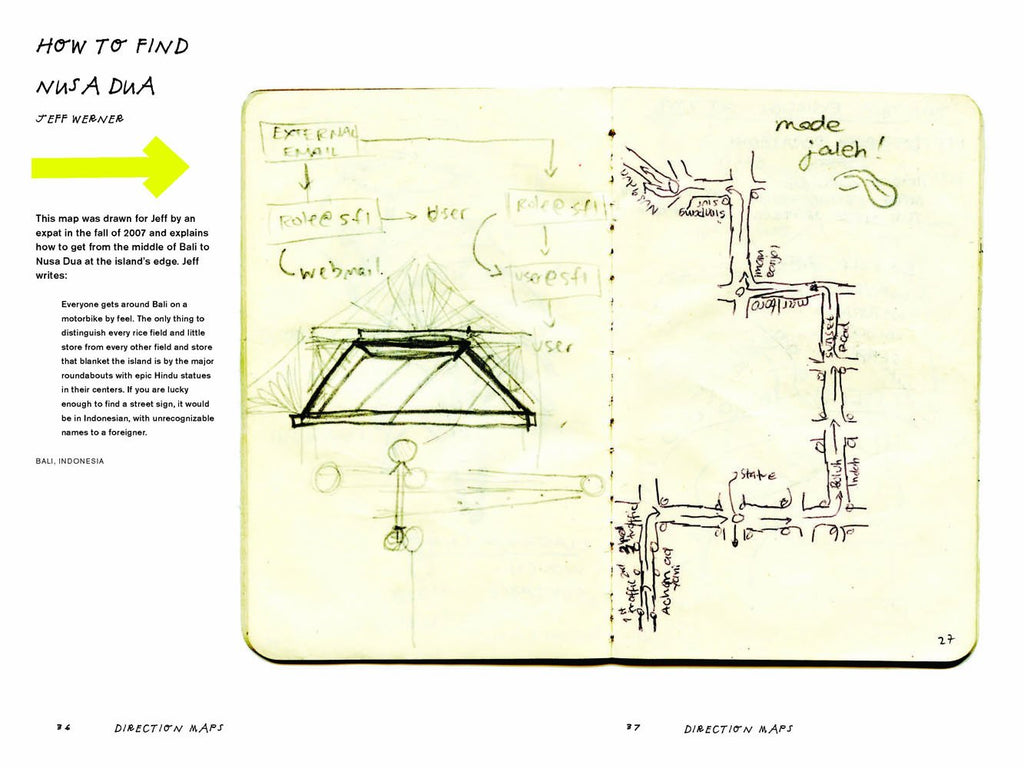 HOW TO FIND
NUSA DUA
JEFF WERNER
This map was drawn for Jeff by an
expat in the fall of 2007 and explains
how to get from the middle of Bali to
Nusa Dua at the island's edge. Jeff
writes:
Everyone gets around Bali on a
motorbike by feel. The only thing to
distinguish every rice field and little
store from every other field and store
that blanket the island is by the major
roundabouts with epic Hindu statues
in their centers. If you are lucky
enough to find a street sign, it would
be in Indonesian, with unrecognizable
names to a foreigner.
BALI, INDONESIA
EXTERNAL
EMAIL
role@sf1
user
webmail
role@sf1
user@sf1
user
made
jaleh!
Nusa Dua
simpang
siur
imam
Bonjol
marlboro
sunset
Road
Buluh
Indah
statue
1st
traffic
2nd
traffic
Achmad
Yani
27
36
DIRECTION MAPS
37
DIRECTION MAPS